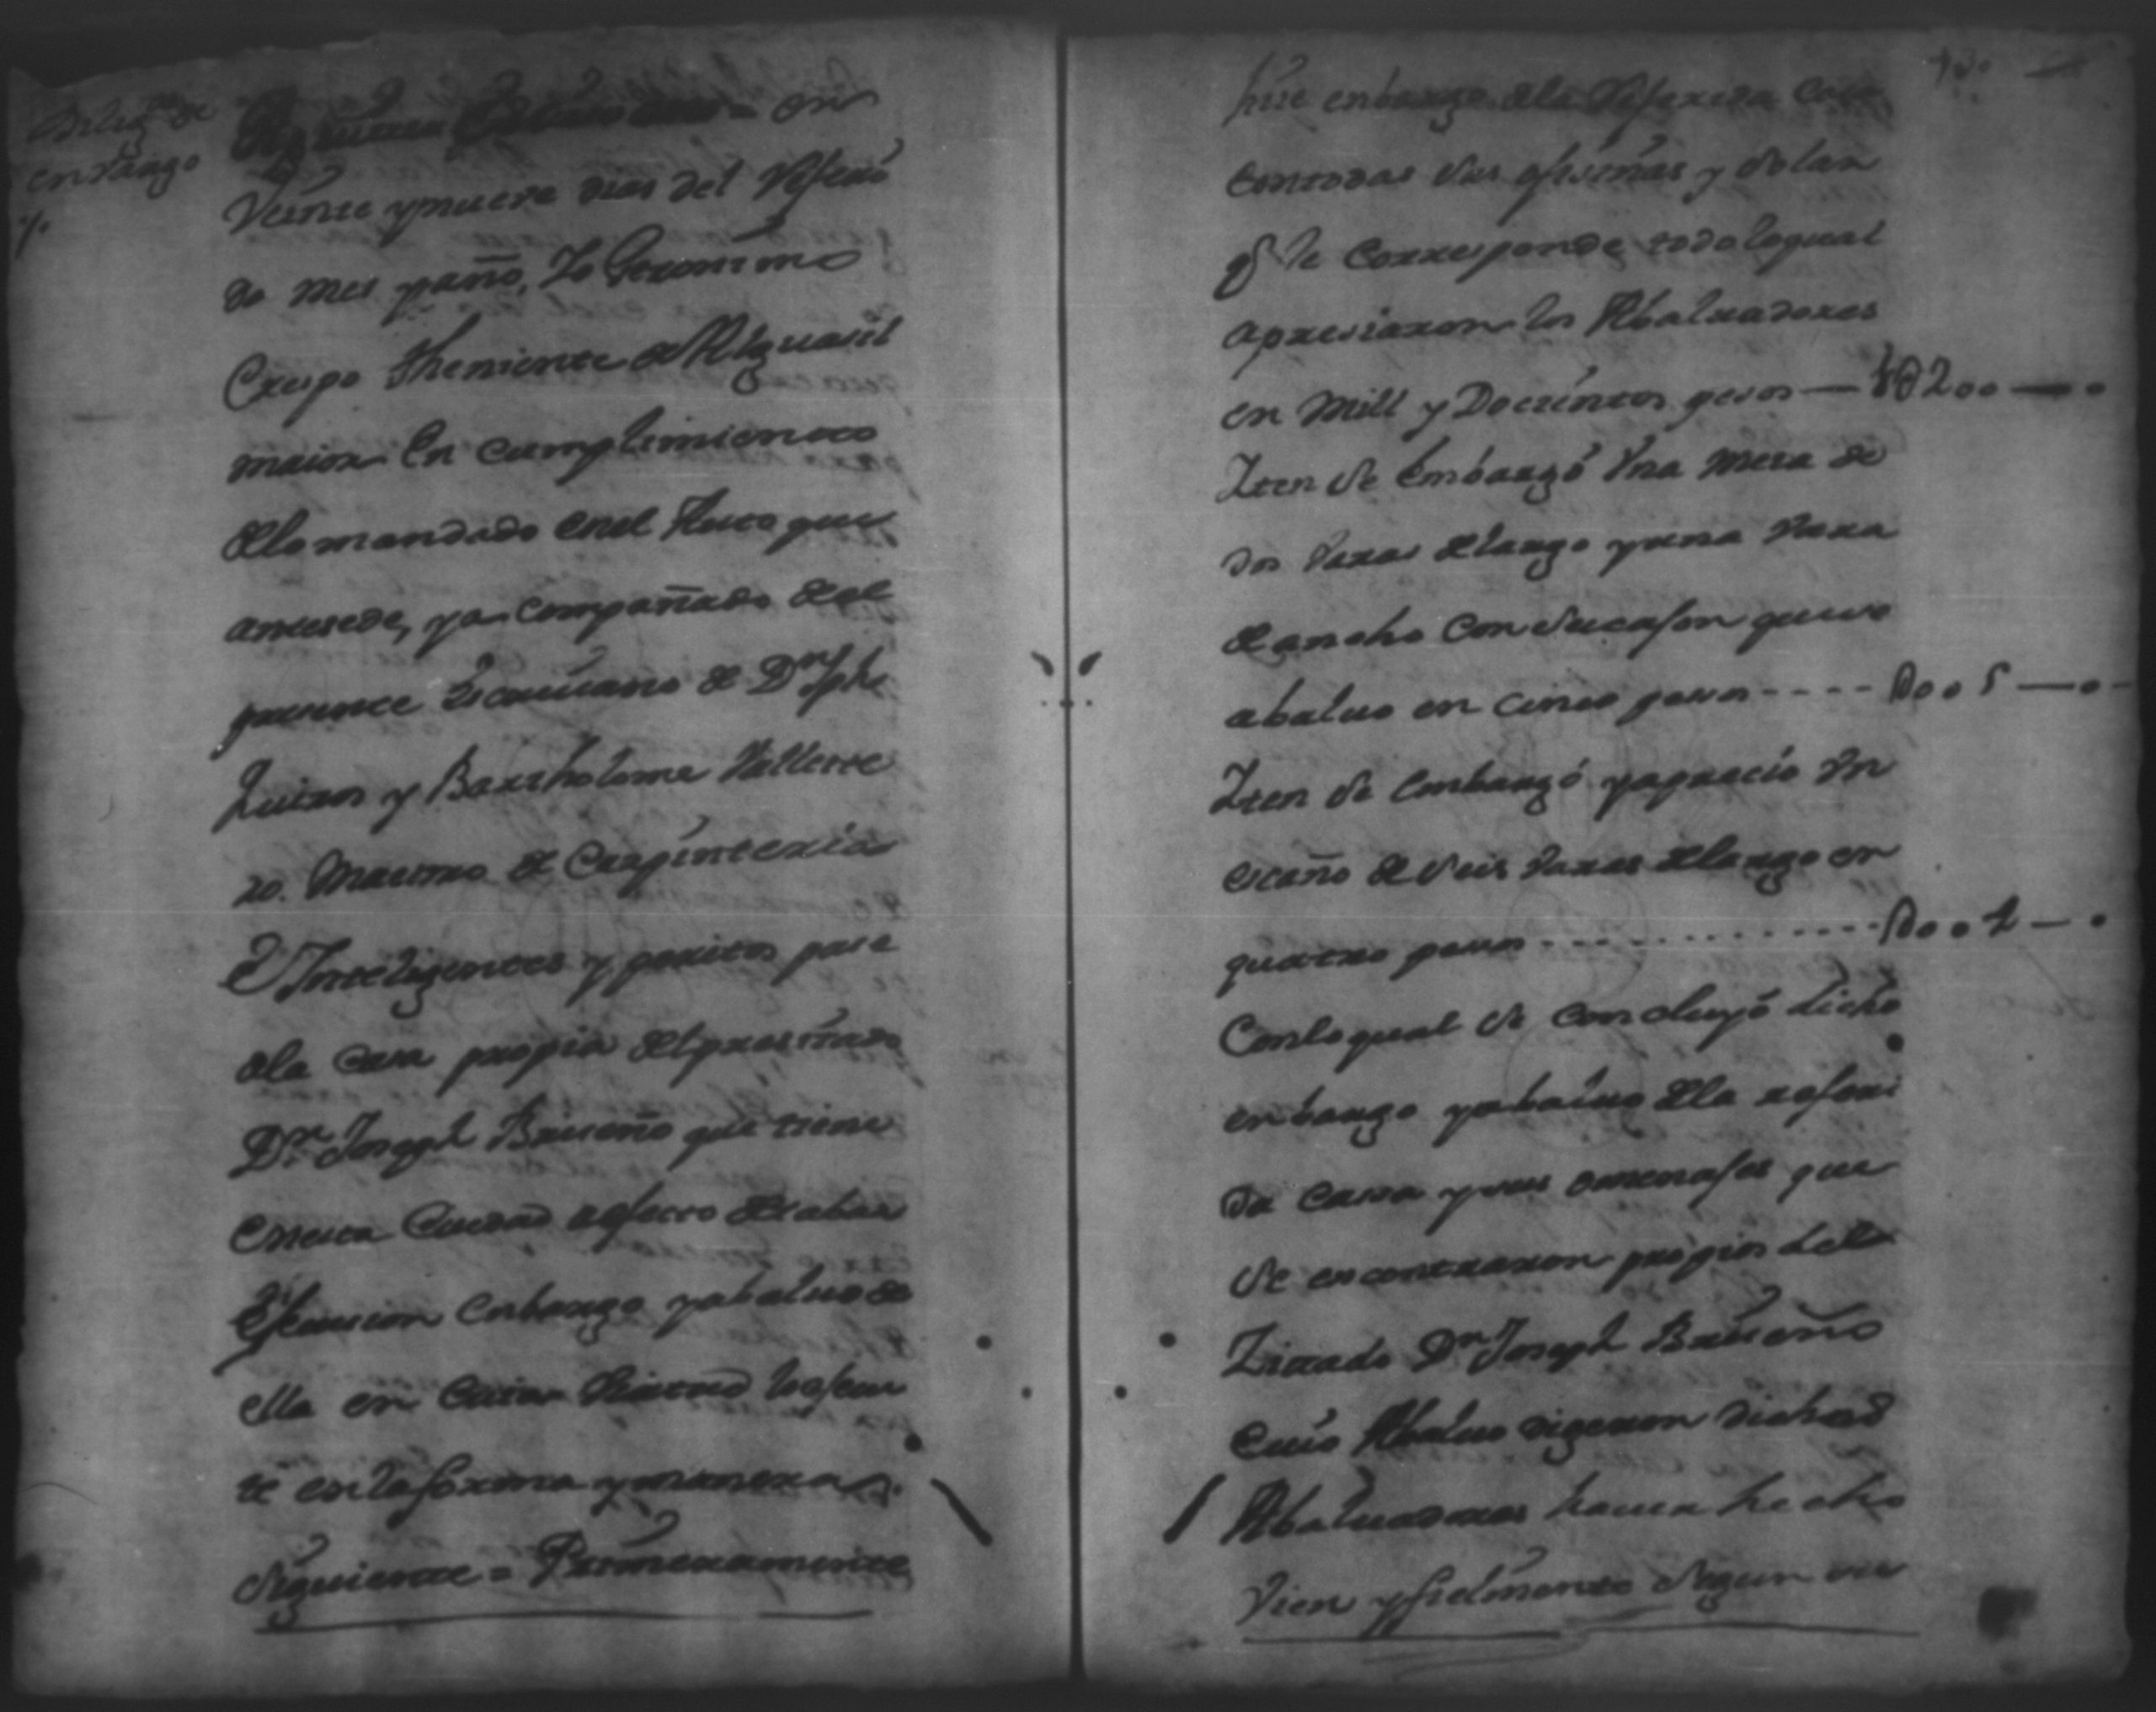 Dilig.ª de
embargo
En
Veinte y nueve dias del Referi
do mes y año, Yo Geronimo
Crespo Theniente de Alguasil
maior En cumplimiento
de lo mandado en el Auto que
antesede, y acompañado del
presente escrivano de Dn Jph
y Bartholome
ro. Maestro de Carpinteria
e Inteligentes y peritos pase
a la casa propia del
Dn Joseph Briseño que tiene
en esta Ciudad a efecto de trabar
Efecucion Embargo y abaluo de
ella en cuia virtud lo efecu
te en la forma y manera
siguiente = Primeramente
hise enbargo de la Referida Casa
con todas sus ofisinas y solar
q.e le corresponde todo lo qual
apresiaron los Abaluadores
en Mill y Docientos pesos — 1U200 —
Iten se embargó Una mesa de
dos Varas de largo y una Vara
de ancho Con su cajon que se
abaluo en cinco pesos ---- U005 —
Iten se embargó y apreció Un
escaño de seis Varas de largo en
quatro pesos ---- U004 —
Con lo qual se concluyó dicho
enbargo y abaluo de la referi
da Casa y sus omenajes que
se encontraron propios del
Dn Joseph Briseño
Cuio Abaluo digeron dichos
Abaluadores haver hecho
Vien y fielmente segun su